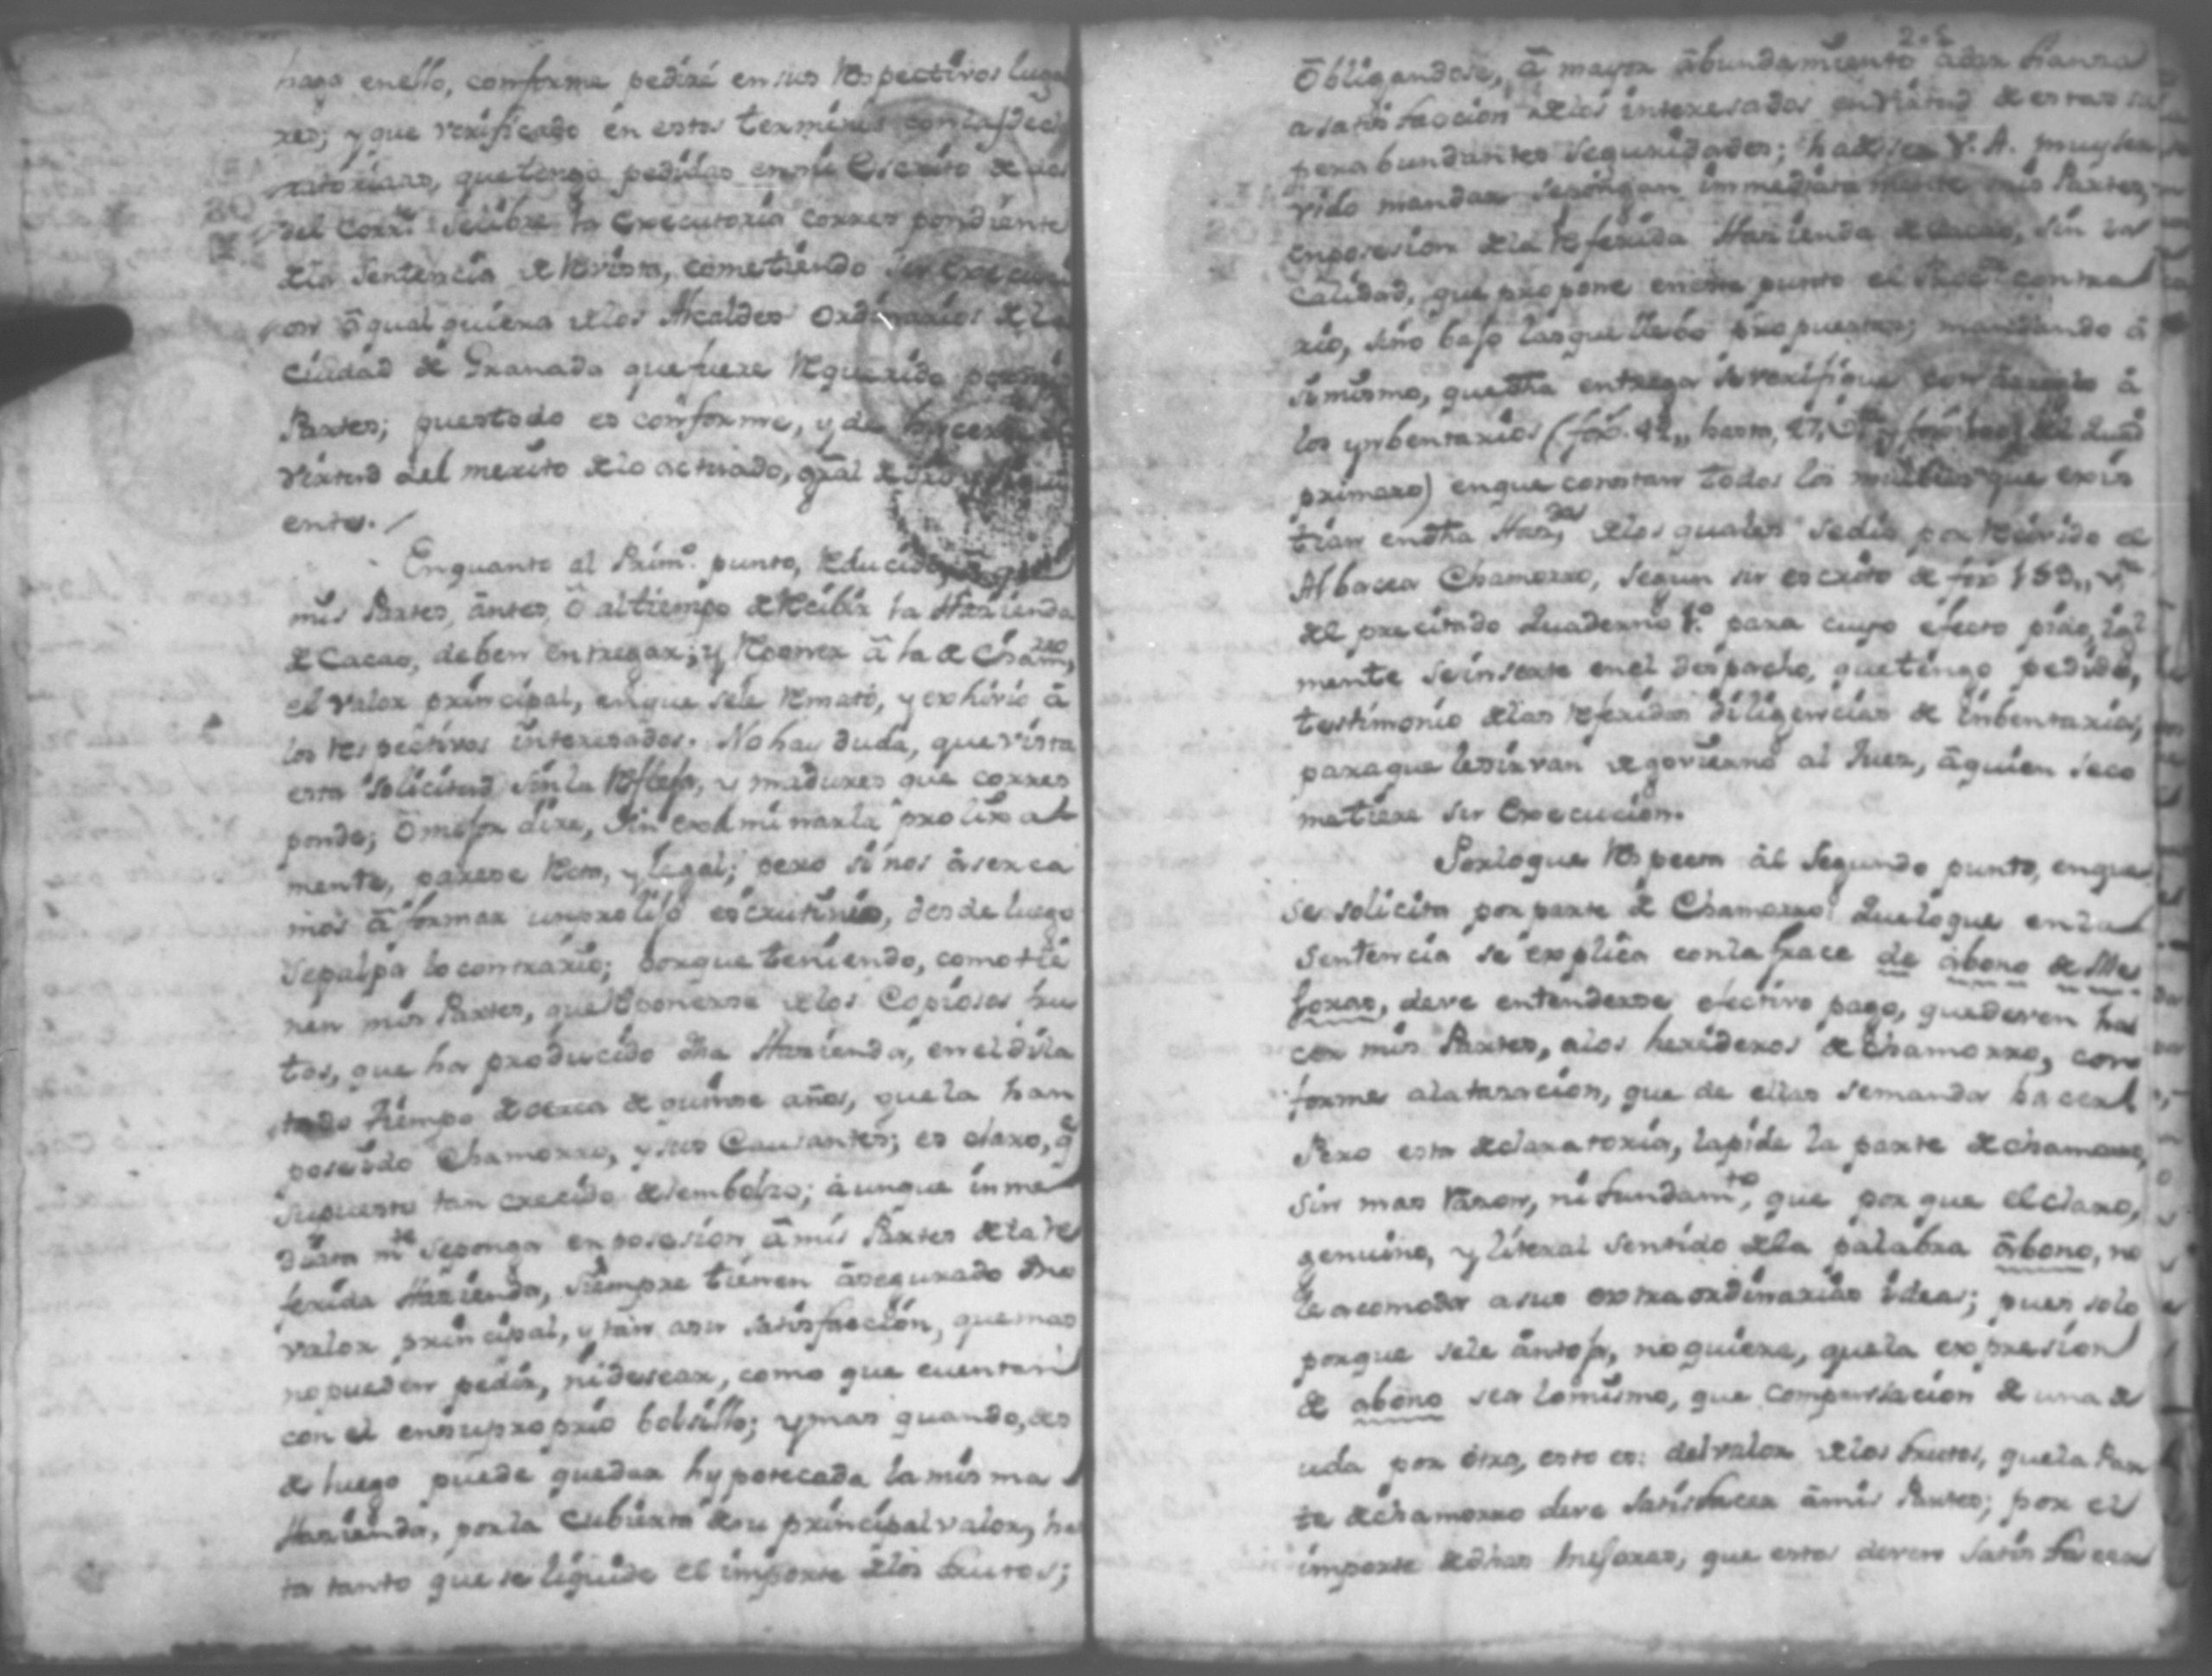 haga enello, conforme pediré en sus Respectivos luga
res; y que verificado en estos terminos con las dec
ratorias, que tengo pedidas en mi Escrito de
del Corr.te se libre la Executoria correspondiente
de la Sentencia de Revista, cometiendo su execusi
on â qualquiera de los Alcaldes Ordinarios de la
Ciudad de Granada que fuere Requerido por mis
Partes; pues todo es conforme, y de hacerse en
virtud del merito de lo actuado, gral de dro y sigui
entes.
Enquanto al Prim.o punto, Reducido, â que
mis Partes, ântes, ô al tiempo de Recibir la Hazienda
de Cacao, deben entregar; y Reponer â la de Cham.rro,
el valor principal, en que se le Remató, y exhivió â
los respectivos interesados. No hay duda, que vista
esta solicitud sin la Refleja, y madures que corres
ponde; ô mejor dire, sin exâminarla prolixa
mente, parese Recta, y legal; pero si nos âserca
mos â formar un prolijo escrutinio, desde luego
se palpa lo contrario; porque teniendo, como tie
nen mis Partes, que Reponerse de los Copiosos fru
tos, que ha producido dha Hazienda, en el dila
tado tiempo de serca de quinse años, que la han
poseido Chamorro, y sus Causantes; es claro, q̃
supuesto tan crecido desembolzo; aunque inme
diata m.te se ponga en posesion â mis Partes de la re
ferida Hazienda, siempre tienen âsegurado dho
valor principal, y tan a su satisfaccion, que mas
no pueden pedir, ni desear, como que cuentan
con el en su proprio bolsillo; y mas quando, des
de luego puede quedar hypotecada la misma
Hazienda, por la cubierta de su principal valor, has
ta tanto que se liquide el importe de los frutos;
Obligandose, â mayor âbundamiento a dar fianza
a satisfaccion de los interesados en virtud de estas su
perabundantes seguridades; ha de ser V. A. muy ser
vido mandar se pongan immediatamente mis Partes,
en posesion de la Referida Hazienda de Cacao, sin la
calidad, que propone en este punto el Proc.or contra
rio, sino bajo las que llevo propuestas; mandando â
si mismo, que dha entrega se verifique con arreglo â
los ynbentarios
primero) en que constan todos los muebles que exis
tian en dha Haz.da, de los quales se dio por Recivido el
Albacea Chamorro, segun su escrito de fox 189,, v.ta
del precitado Quaderno 1.o para cuyo efecto pido, igual
mente se inserte en el despacho, que tengo pedido,
testimonio de las Referidas diligencias de inbentarios,
para que le sirvan de govierno al Juez, â quien se co
metiere su Execucion.
Por lo que Respecta âl Segundo punto, en que
se solicita por parte de Chamorro: Que lo que en la
sentencia se explica con la frace de âbono de Me
joras, deve entenderse efectivo pago, que deven ha
cer mis Partes, a los herederos de Chamorro, con
forme a la tasacion, que de ellas se manda hacer
Pero esta declaratoria, la pide la parte de Chamorro,
sin mas Razon, ni fundam.to, que por que el claro,
genuino, y literal sentido de la palabra âbono, no
le acomoda a sus extraordinarias ideas; pues solo
porque se le ântoja, no quiere, que la expresion
de abono sea lo mismo, que Compensacion de una de
uda por ôtra, esto es: del valor de los frutos, que la Par
te de Chamorro deve satisfacer â mis Partes; por el
importe de dichas Mejoras, que estos deven satisfacer